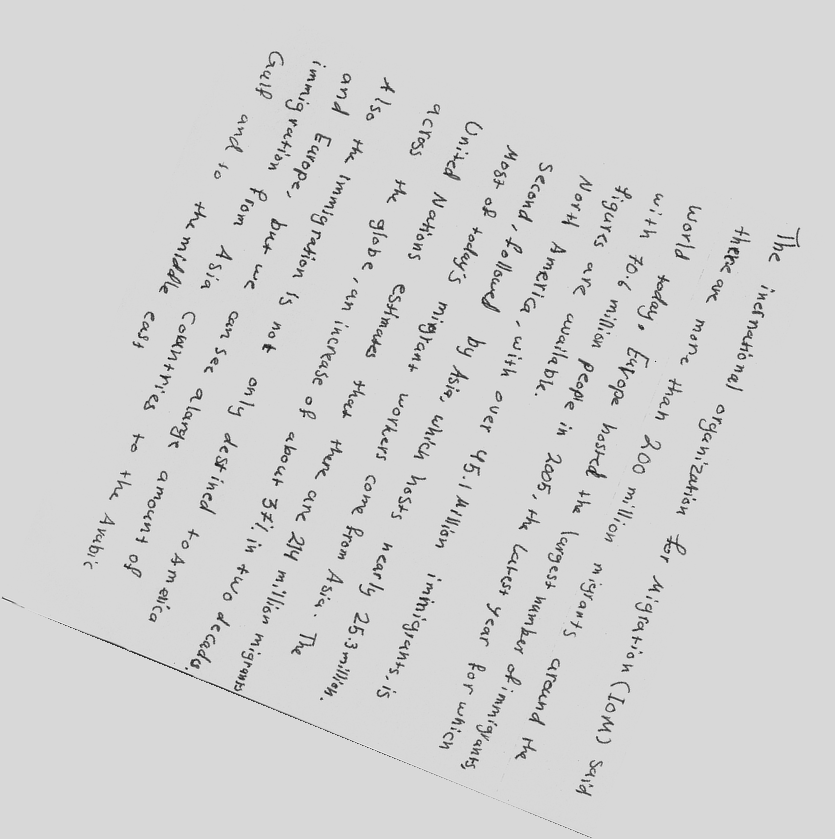 The inernational organization for Migration (IOM) said
there are more than 200 million migrants around the
world today. Europe hosted the largest number of immigrants,
with 70.6 million people in 2005, the latest year for which
figures are available.
North America, with over 45.1 Million immigrants, is
Second, followed by Asia, which hosts nearly 25.3 million.
Most of today's migrant workers come from Asia. The
United Nations estimates that there are 214 million migrants
across the globe, an increase of about 37% in two decads.
Also the immigration is not only destined to America
and Europe, but we can see alarge amount of
immigration from Asia countries to the Arabic
Gulf and to the middle east